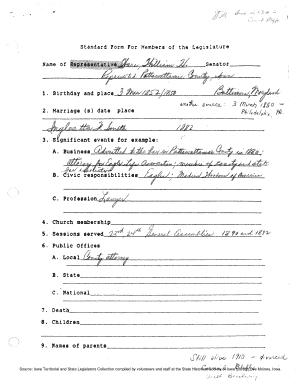 Standard Form For Members of the Legislature
Name of Representative Ware, William H. Senator
Represented Pottawattamie County, Iowa
1. Birthday and place 3 Mar 1852/1850 Baltimore, Maryland
another source: 3 March 1850 -
Philadelphia, PA.
2. Marriage (s) date place
Smith 1882
3. Significant events for example:
A. Business Admitted to the bar in Pottawattamie County in 1880;
attorney for Eagles Life Association; member of county and state
bar
B. Civic responsibilities Eagles; Modern Woodmen of America
C. Profession Lawyer
4. Church membership
5. Sessions served 23rd, 24th General Assemblies 1890 and 1892
6. Public Offices
A. Local County attorney
B. State
C. National
7. Death
8. Children
9. Names of parents
Still alive 1910 -
Source: Iowa Territorial and State Legislators Collection compiled by volunteers and staff at the State Historical Society of Iowa Library, Des Moines, Iowa.